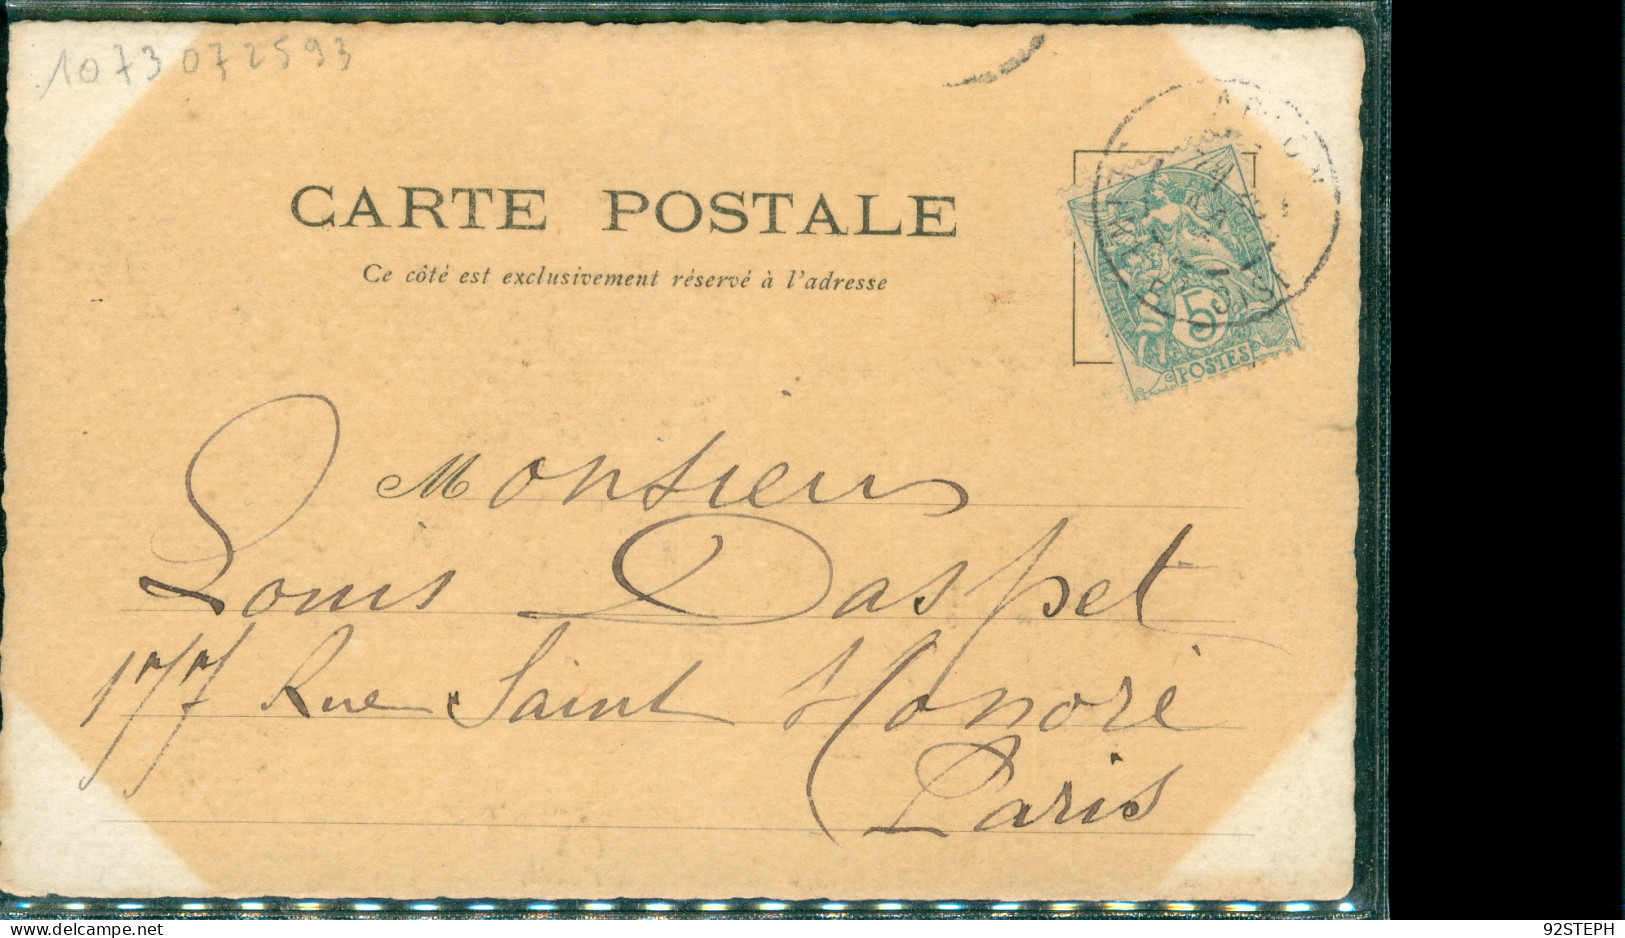 1073 072593
CARTE POSTALE
Ce côté est exclusivement réservé à l'adresse
5
POSTES
Monsieur
Louis Daspet
177 Rue Saint Honoré
Paris
delcampe.net
92STEPH